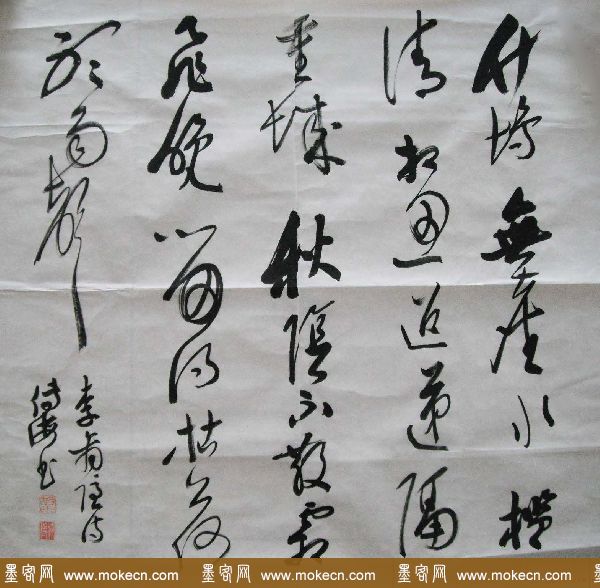 竹塢無塵水檻
清相思迢遞隔
重城秋陰不散霜
飛晚留得枯荷
聽雨聲
李商隱詩
海书
墨客网 www.mokecn.com 墨客网 www.mokecn.com 墨客网 www.mokecn.com